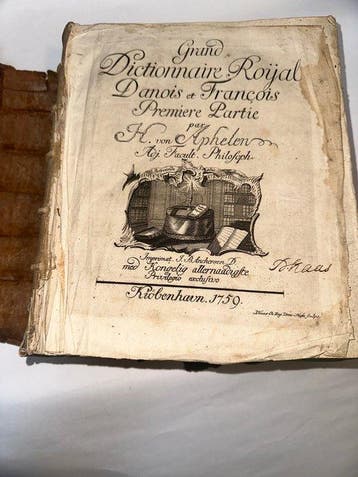 Grand
Dictionnaire Roÿal
Danois et François
Premiere Partie
par
H. von Aphelen
Adj. Facult. Philosoph.
Imprimat. J. P. Anchersen D.
med Kongelig allernaadigste
Privilegio exclusivo
Kiöbenhavn. 1759.
Haas